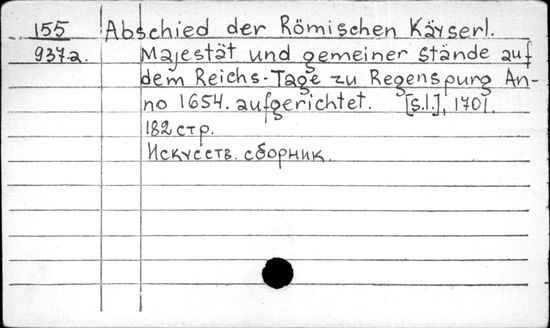 155 Abschied der Römischen Käyserl.
937a. Majestät und gemeiner Stände auf
dem Reichs-Tage zu Regenspurg An-
no 1654. aufgerichtet. [S.l.], 1701.
182 стр.
Искусств. сборник.